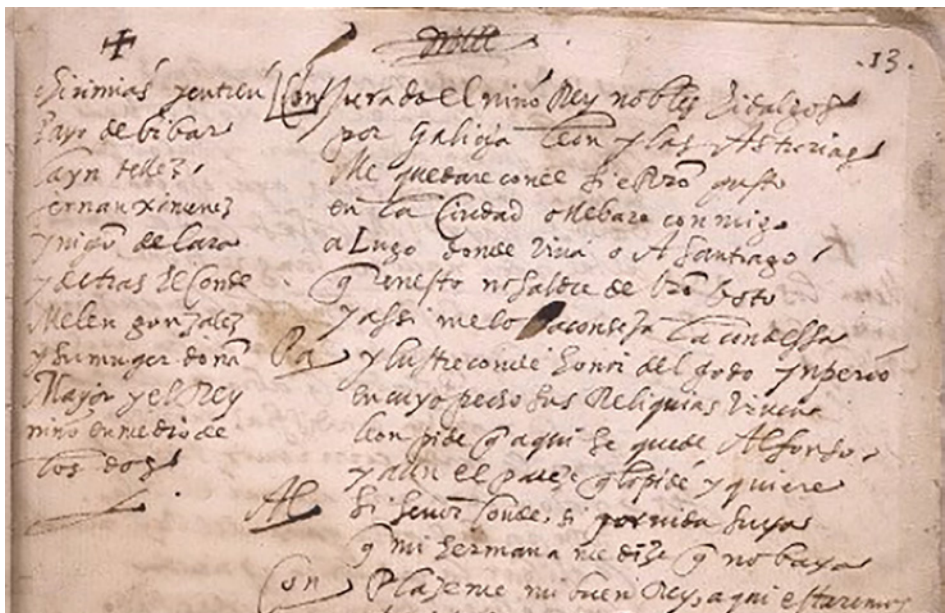 13
chirimias y entren
Payo de bibar
layn tellez
fernan ximenez
yñigo de lara
y detras el Conde
Melen gonzalez
y su muger doña
Mayor y el Rey
niño en medio de
los dos
Con jurado el niño Rey nobles hidalgos
por Galicia leon y las Asturias
Me quedare conde si es vro gusto
en la Ciudad o llebare conmigo
a Lugo donde viva o A Santiago
q en esto no saldre de vro boto
y assi me lo aconseja la condessa
Pa ylustre conde honor del godo ynperio
en cuyo pecho sus Reliquias viven
leon pide q aqui se quede Alfonso
y aun el q lo pide y quiere
Al Si señor Conde, si por vida suya
q mi hermana me dize q no baya
Con Plazeme mi buen Rey, aqui estaremos